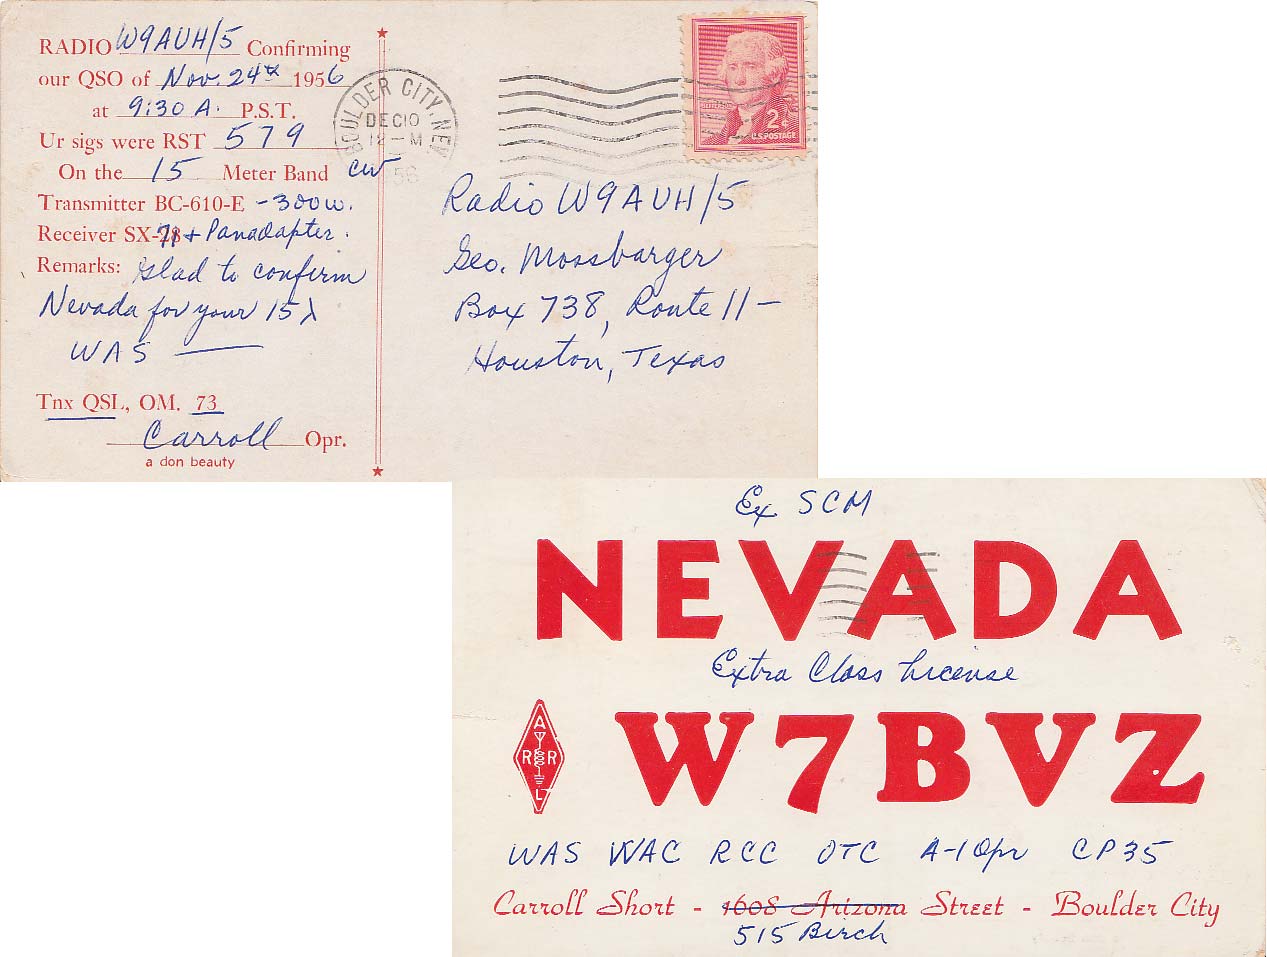 RADIO W9AUH/5 Confirming
our QSO of Nov. 24th 1956
at 9:30 A. P.S.T.
Ur sigs were RST 579
On the 15 Meter Band CW
Transmitter BC-610-E - 300w.
Receiver SX-71 + Panadapter.
Remarks: Glad to confirm
Nevada for your 15λ
WAS —
Tnx QSL, OM. 73
Carroll Opr.
a don beauty
BOULDER CITY, NEV.
DEC 10
12 — M
56
2¢
U.S. POSTAGE
Radio W9AUH/5
Geo. Mossbarger
Box 738, Route 11 —
Houston, Texas
Ex SCM
NEVADA
Extra Class License
ARRL
W7BVZ
WAS WAC RCC OTC A-1 Opr CP35
Carroll Short - 1608 Arizona Street - Boulder City
515 Birch